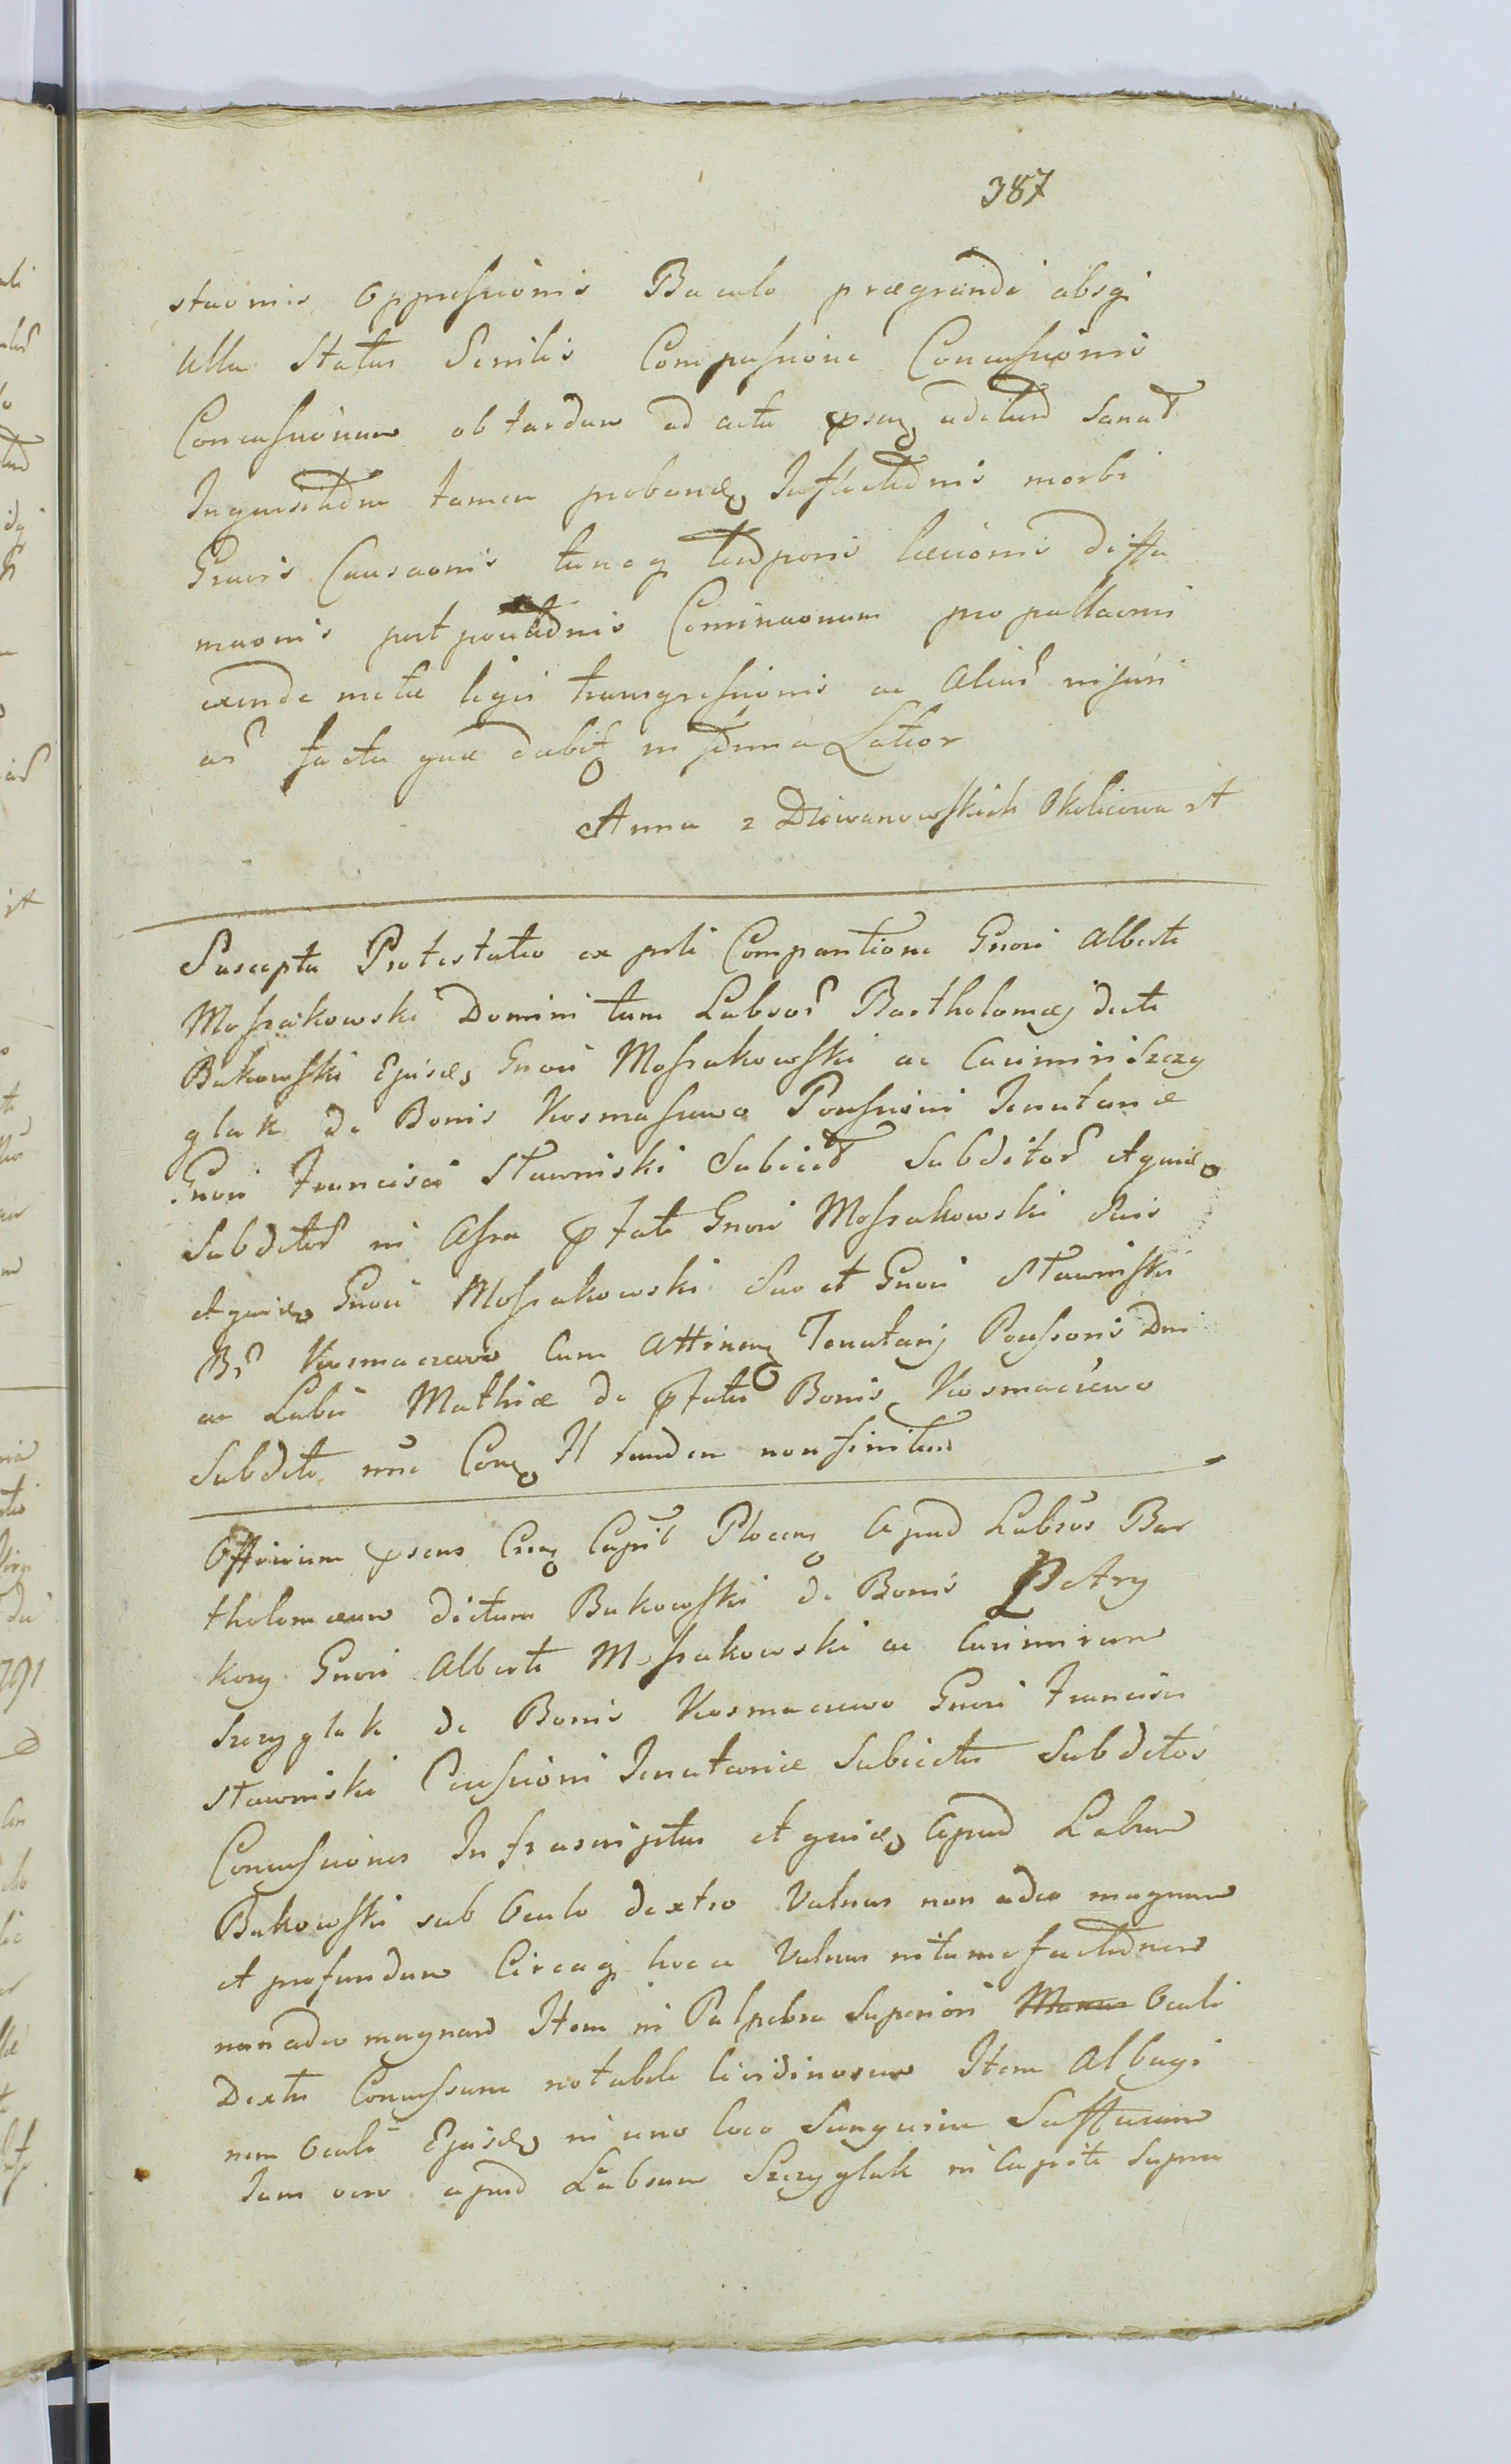 387
staonis Oppressionis Baculo praegrandi absq
ulla Status Senilis Compassione Concussionis
Concussionum ob tardum ad acta psen aditum Sanat
Inquisitionem tamen proband Inflictionis morbi
Gravis Causaonis tuncq temporis laesionis diffa
maonis postpositionis Comminaonum pro pallaoni
exinde metu legis transgressionis ac Aliar injuri
ar facta quae dabit in forma Latior
Anna z Dziwanowskich Okolicowa st
Suscepta Protestatio ex psti Comparitione Gnosi Alberti
Mossakowski Domini tum Labsor Bartholomaej dicti
Bukowski Ejusd Gnosi Mossakowski ac Casimiri Szczy
glak de Bonis Kosmaszewo Possessioni Tenutariae
Gnosi Francisci Stawiński Subiect Subditor et quid
Subditor in Assa pfate Gnosi Mossakowski Suis
et quid Gnosi Mossakowski Suo et Gnosi Stawiński
Br Kosmaczewo Cum Attinen Tenutarij Possessoris Dni
ac Labsi Mathiae de pfatis Bonis Kosmaczewo
Subditi Con It tandem non finitum
Officium psens Cap Plocen Apud Labsos Bar
tholomaeum dictum Bukowski de Bonis Petry
kozy Gnosi Alberti Mossakowski ac Casimirum
Szczyglak de Bonis Kosmaczewo Gnosi Francisci
Stawiński Possessioni Tenutariae Subiectos Subditos
Concussiones Infrascriptas et quid Apud Labsum
Bukowski sub Oculo dextro Vulnus non adeo magnum
et profundum Circaq hocce Vulnus intumefactionem
non adeo magnam Item in Palpebra Superiori Manus Oculi
Dextri Concussum notabile lividinosum Item Albugi
nem Oculi Ejusd in uno loco Sanguine Suffusum
Tum vero apud Labsum Szczyglak in Capite Supra